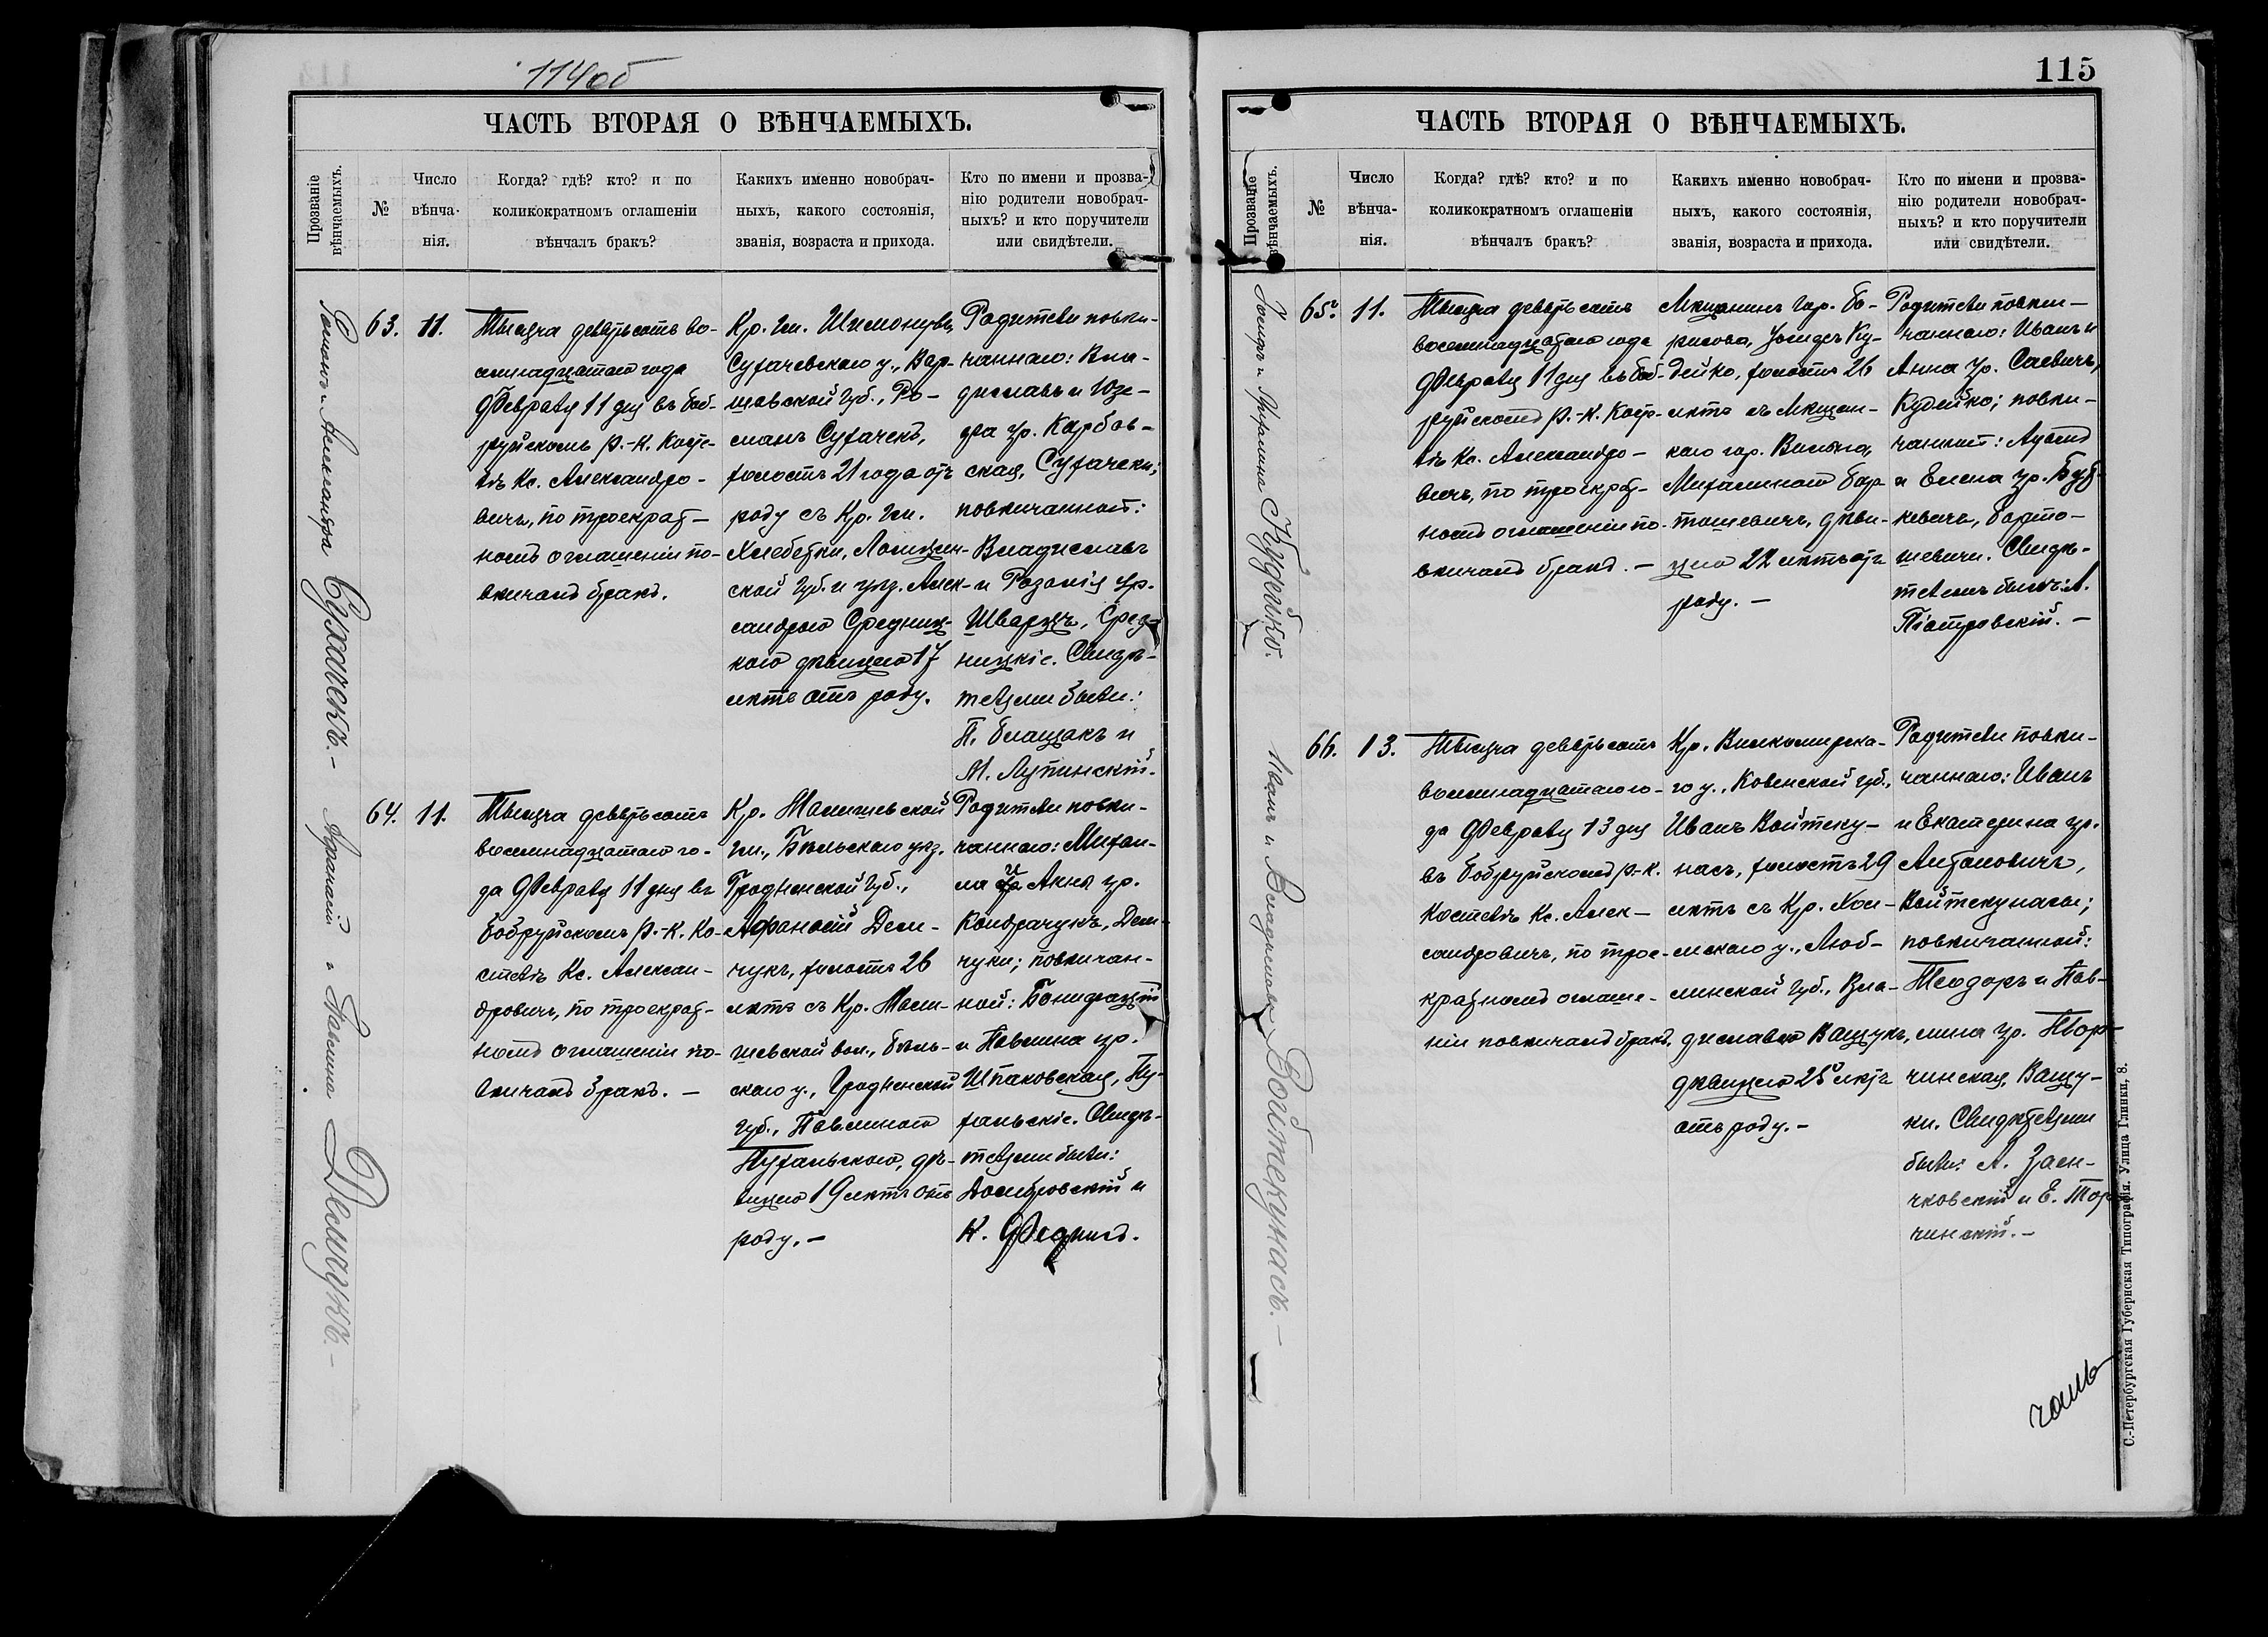 114об
ЧАСТЬ ВТОРАЯ О ВѢНЧАЕМЫХЪ.
Прозваніе
вѣнчаемыхъ.
№
Число
вѣнча-
нія.
Когда? гдѣ? кто? и по
коликократномъ оглашеніи
вѣнчалъ бракъ?
Какихъ именно новобрач-
ныхъ, какого состоянія,
званія, возраста и прихода.
Кто по имени и прозва-
нію родители новобрач-
ныхъ? и кто поручители
или свидѣтели.
Романъ и Александра Сухачекъ.-
63.
11.
Тысяча девятьсотъ во-
семнадцатаго года
Февраля 11 дня въ Боб-
руйскомъ Р.-К. Косте-
лѣ Кс. Александро-
вичъ, по троекрат-
номъ оглашеніи по-
вѣнчалъ бракъ.
Кр. гм.
у., Вар-
шавской губ., Ро-
манъ Сухачекъ,
холостъ 21 года отъ
роду съ Кр. гм.
Хлебетки, Ломжин-
ской губ. и уѣз. Алек-
сандрою Средниц-
кою дѣвицею 17
лѣтъ отъ роду.
Родители повѣн-
чаннаго: Вла-
диславъ и Юзе-
фа ур. Карбов-
ская, Сухачеки;
повѣнчанной:
Владиславъ
и Розалія ур.
Шварцъ, Сред-
ницкіе. Свидѣ-
телями были:
П. Блащакъ и
М. Лупинскій.
Афанасій и Павлина Демчукъ.-
64.
11.
Тысяча девятьсотъ
восемнадцатаго го-
да Февраля 11 дня въ
Бобруйскомъ Р.-К. Ко-
стелѣ Кс. Алексан-
дровичъ, по троекрат-
номъ оглашеніи по-
вѣнчалъ бракъ. -
Кр.
гм., Бѣльскаго уѣз.
Гродненской губ.,
Афанасій Дем-
чукъ, холостъ 26
лѣтъ съ Кр.
вол., Бѣль-
скаго у., Гродненской
губ., Павлиною
Пухальскою, дѣ-
вицею 19 лѣтъ отъ
роду. -
Родители повѣн-
чаннаго: Михаи-
ла и Анна ур.
Кондрачукъ, Дем-
чуки; повѣнчан-
ной: Бонифацій
и Павлина ур.
Шпаковская, Пу-
хальскіе. Свидѣ-
телями были:
Домбровскій и
К.
115
ЧАСТЬ ВТОРАЯ О ВѢНЧАЕМЫХЪ.
Прозваніе
вѣнчаемыхъ.
№
Число
вѣнча-
нія.
Когда? гдѣ? кто? и по
коликократномъ оглашеніи
вѣнчалъ бракъ?
Какихъ именно новобрач-
ныхъ, какого состоянія,
званія, возраста и прихода.
Кто по имени и прозва-
нію родители новобрач-
ныхъ? и кто поручители
или свидѣтели.
Іосифъ и Михалина Кудейко.
65.
11.
Тысяча девятьсотъ
восемнадцатаго года
Февраля 11 дня въ Боб-
руйскомъ Р.-К. Косте-
лѣ Кс. Александро-
вичъ, по троекрат-
номъ оглашеніи по-
вѣнчалъ бракъ. -
Мѣщанинъ гор. Бо-
рисова, Іосифъ Ку-
дейко, холостъ 26
лѣтъ съ Мѣщан-
кою гор. Вильна,
Михалиною Бар-
тошевичъ, дѣви-
цею 22 лѣтъ отъ
роду. -
Родители повѣн-
чаннаго: Иванъ и
Анна ур. Саевичъ,
Кудейко; повѣн-
чанной: Адамъ
и Елена ур.
Барто-
шевичи. Свидѣ-
телемъ былъ: А.
Піотровскій. -
Иванъ и Владислава Войтекунасъ.-
66.
13.
Тысяча девятьсотъ
восемнадцатаго го-
да Февраля 13 дня
въ Бобруйскомъ Р.-К.
Костелѣ Кс. Алек-
сандровичъ, по трое-
кратномъ оглаше-
ніи повѣнчалъ бракъ.
Кр. Вилкомирска-
го у., Ковенской губ.,
Иванъ Войтеку-
насъ, холостъ 29
лѣтъ съ Кр. Хол-
мскаго у., Люб-
линской губ., Вла-
диславою Ващукъ,
дѣвицею 25 лѣтъ
отъ роду. -
Родители повѣн-
чаннаго: Иванъ
и Екатерина ур.
Антоновичъ,
Войтекунасы;
повѣнчанной:
Теодоръ и Пав-
лина ур. Твор-
чинская, Ващу-
ки. Свидѣтелями
были: А. Заен-
чковскій и Е. Тор-
чинскій. -
С.-Петербургская Губернская Типографія. Улица Глинки, 8.